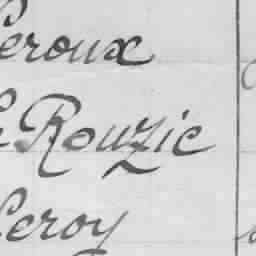 Leroux
Le Rouzic
Leroy